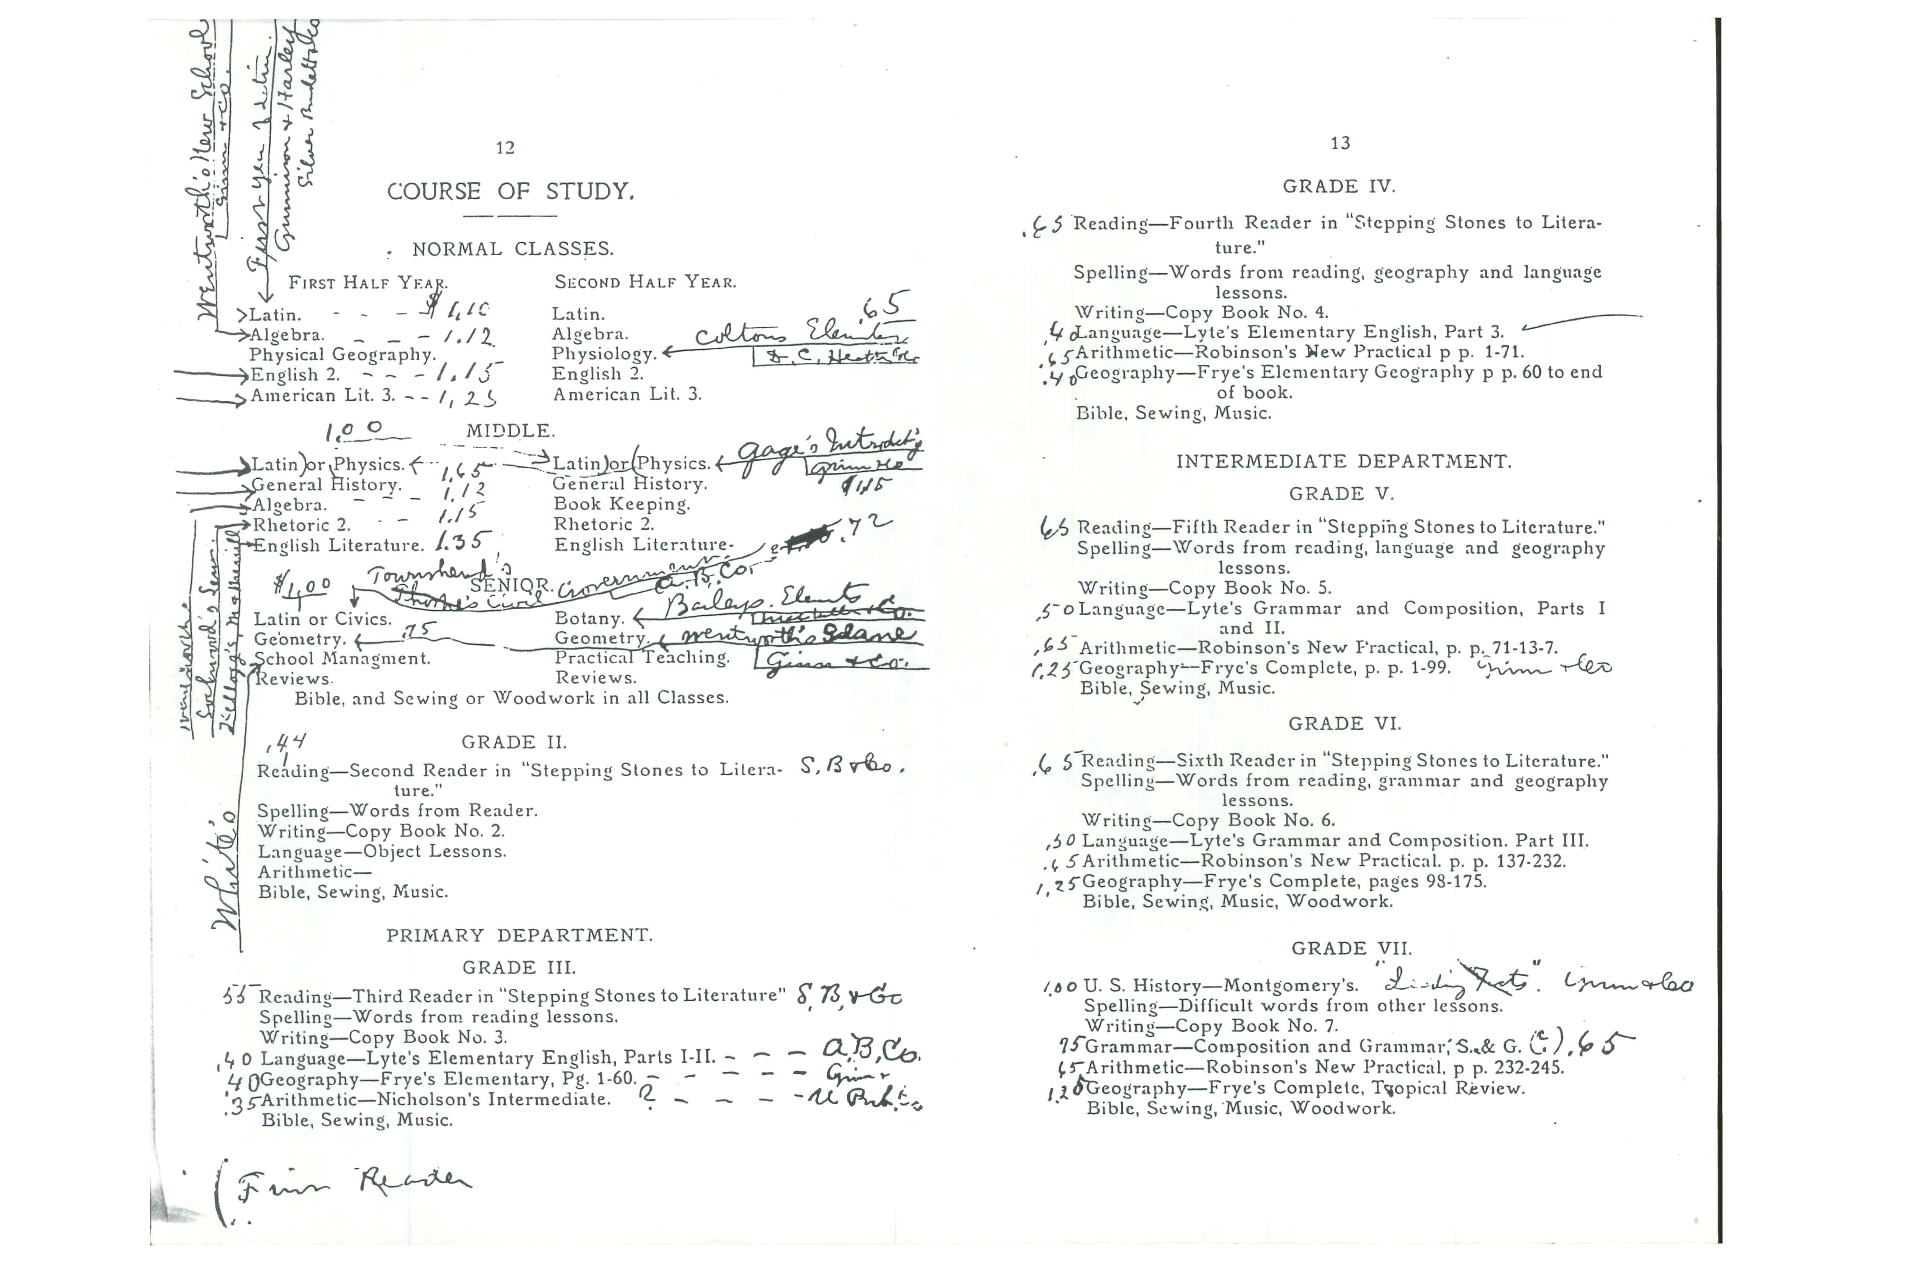 Wentworth's New School
Ginn & Co.
First Year of Latin.
Gunnison & Harley
Silver Burdett & Co
12
COURSE OF STUDY.
NORMAL CLASSES.
FIRST HALF YEAR.
SECOND HALF YEAR.
>Latin. - - - $1.10
Latin.
.65
Algebra. - - - 1.12
Algebra.
Coltons Elements
Physical Geography.
Physiology.
D. C. Heath & Co
English 2. - - - 1.15
English 2.
American Lit. 3. - - 1.25
American Lit. 3.
1.00
MIDDLE.
Latin) or Physics. 1.65
Latin) or (Physics.
Gage's Introduct'y
Ginn & Co
General History. 1.12
General History.
$1.15
Algebra. - - - 1.15
Book Keeping.
Rhetoric 2. - -
Rhetoric 2.
English Literature. 1.35
English Literature-
.72
$1.00
Townshend's
SENIOR.
Thorpe's Civil Government
A. B. Co.
Latin or Civics.
Botany.
Baileys. Elements
Geometry. .75
Geometry.
Wentworth's Plane
School Managment.
Practical Teaching.
Ginn & Co.
Reviews.
Reviews.
Bible, and Sewing or Woodwork in all Classes.
Kellogg's
White's
.44
GRADE II.
Reading—Second Reader in "Stepping Stones to Litera- S. B & Co.
ture."
Spelling—Words from Reader.
Writing—Copy Book No. 2.
Language—Object Lessons.
Arithmetic—
Bible, Sewing, Music.
PRIMARY DEPARTMENT.
GRADE III.
55 Reading—Third Reader in "Stepping Stones to Literature" S. B. & Co
Spelling—Words from reading lessons.
Writing—Copy Book No. 3.
.40 Language—Lyte's Elementary English, Parts I-II. - - - A. B. Co.
40 Geography—Frye's Elementary, Pg. 1-60. - - - - Ginn &
.35 Arithmetic—Nicholson's Intermediate. ? - - - - U Pub. Co
Bible, Sewing, Music.
( Reader
13
GRADE IV.
.65 Reading—Fourth Reader in "Stepping Stones to Litera-
ture."
Spelling—Words from reading, geography and language
lessons.
Writing—Copy Book No. 4.
.40 Language—Lyte's Elementary English, Part 3.
.65 Arithmetic—Robinson's New Practical p p. 1-71.
.40 Geography—Frye's Elementary Geography p p. 60 to end
of book.
Bible, Sewing, Music.
INTERMEDIATE DEPARTMENT.
GRADE V.
65 Reading—Fifth Reader in "Stepping Stones to Literature."
Spelling—Words from reading, language and geography
lessons.
Writing—Copy Book No. 5.
.50 Language—Lyte's Grammar and Composition, Parts I
and II.
.65 Arithmetic—Robinson's New Practical, p. p. 71-13-7.
1.25 Geography—Frye's Complete, p. p. 1-99. Ginn & Co
Bible, Sewing, Music.
GRADE VI.
.65 Reading—Sixth Reader in "Stepping Stones to Literature."
Spelling—Words from reading, grammar and geography
lessons.
Writing—Copy Book No. 6.
.50 Language—Lyte's Grammar and Composition. Part III.
.65 Arithmetic—Robinson's New Practical. p. p. 137-232.
1.25 Geography—Frye's Complete, pages 98-175.
Bible, Sewing, Music, Woodwork.
GRADE VII.
1.00 U. S. History—Montgomery's. "Leading Facts". Ginn & Co
Spelling—Difficult words from other lessons.
Writing—Copy Book No. 7.
75 Grammar—Composition and Grammar, S. & G. (C.) .65
65 Arithmetic—Robinson's New Practical, p p. 232-245.
1.25 Geography—Frye's Complete, Tropical Review.
Bible, Sewing, Music, Woodwork.